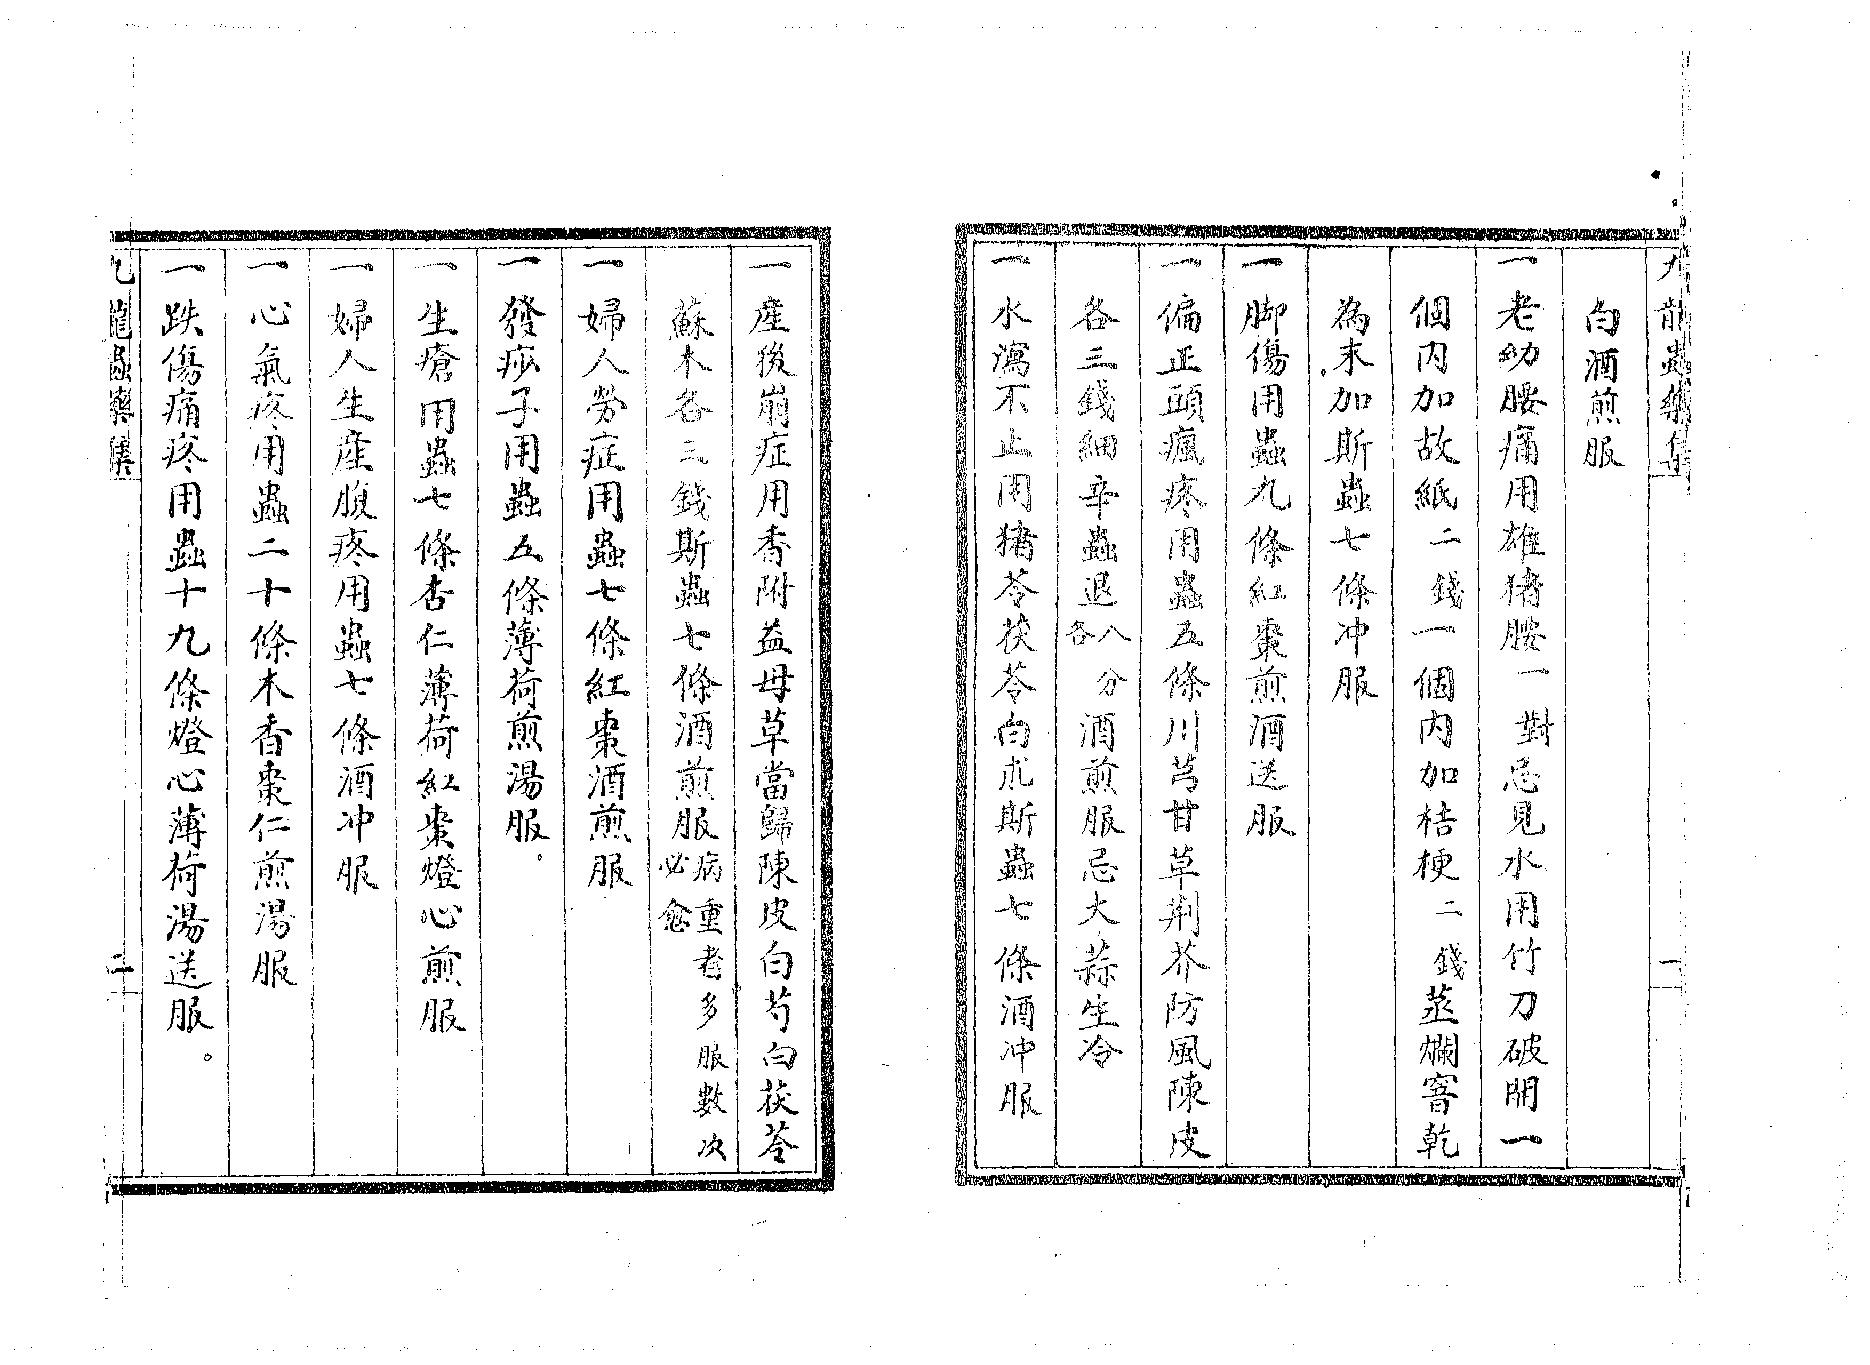 九龍蟲藥集
一
白酒煎服
一老幼腰痛用雄猪腰一對忌見水用竹刀破開一
個内加故紙二錢一個内加桔梗二錢蒸爛窨乾
為末加斯蟲七條冲服
一脚傷用蟲九條紅棗煎酒送服
一偏正頭瘋疼用蟲五條川芎甘草荆芥防風陳皮
各三錢細辛蟲退各八分酒煎服忌大蒜生冷
一水瀉不止用猪苓茯苓白朮斯蟲七條酒冲服
一産後崩症用香附益母草當歸陳皮白芍白茯苓
蘇木各三錢斯蟲七條酒煎服病重者多服數次必愈
一婦人勞症用蟲七條紅棗酒煎服
一發痧子用蟲五條薄荷煎湯服。
一生瘡用蟲七條杏仁薄荷紅棗燈心煎服
一婦人生産腹疼用蟲七條酒冲服
一心氣疼用蟲二十條木香棗仁煎湯服
一跌傷痛疼用蟲十九條燈心薄荷湯送服。
九龍蟲藥集
二